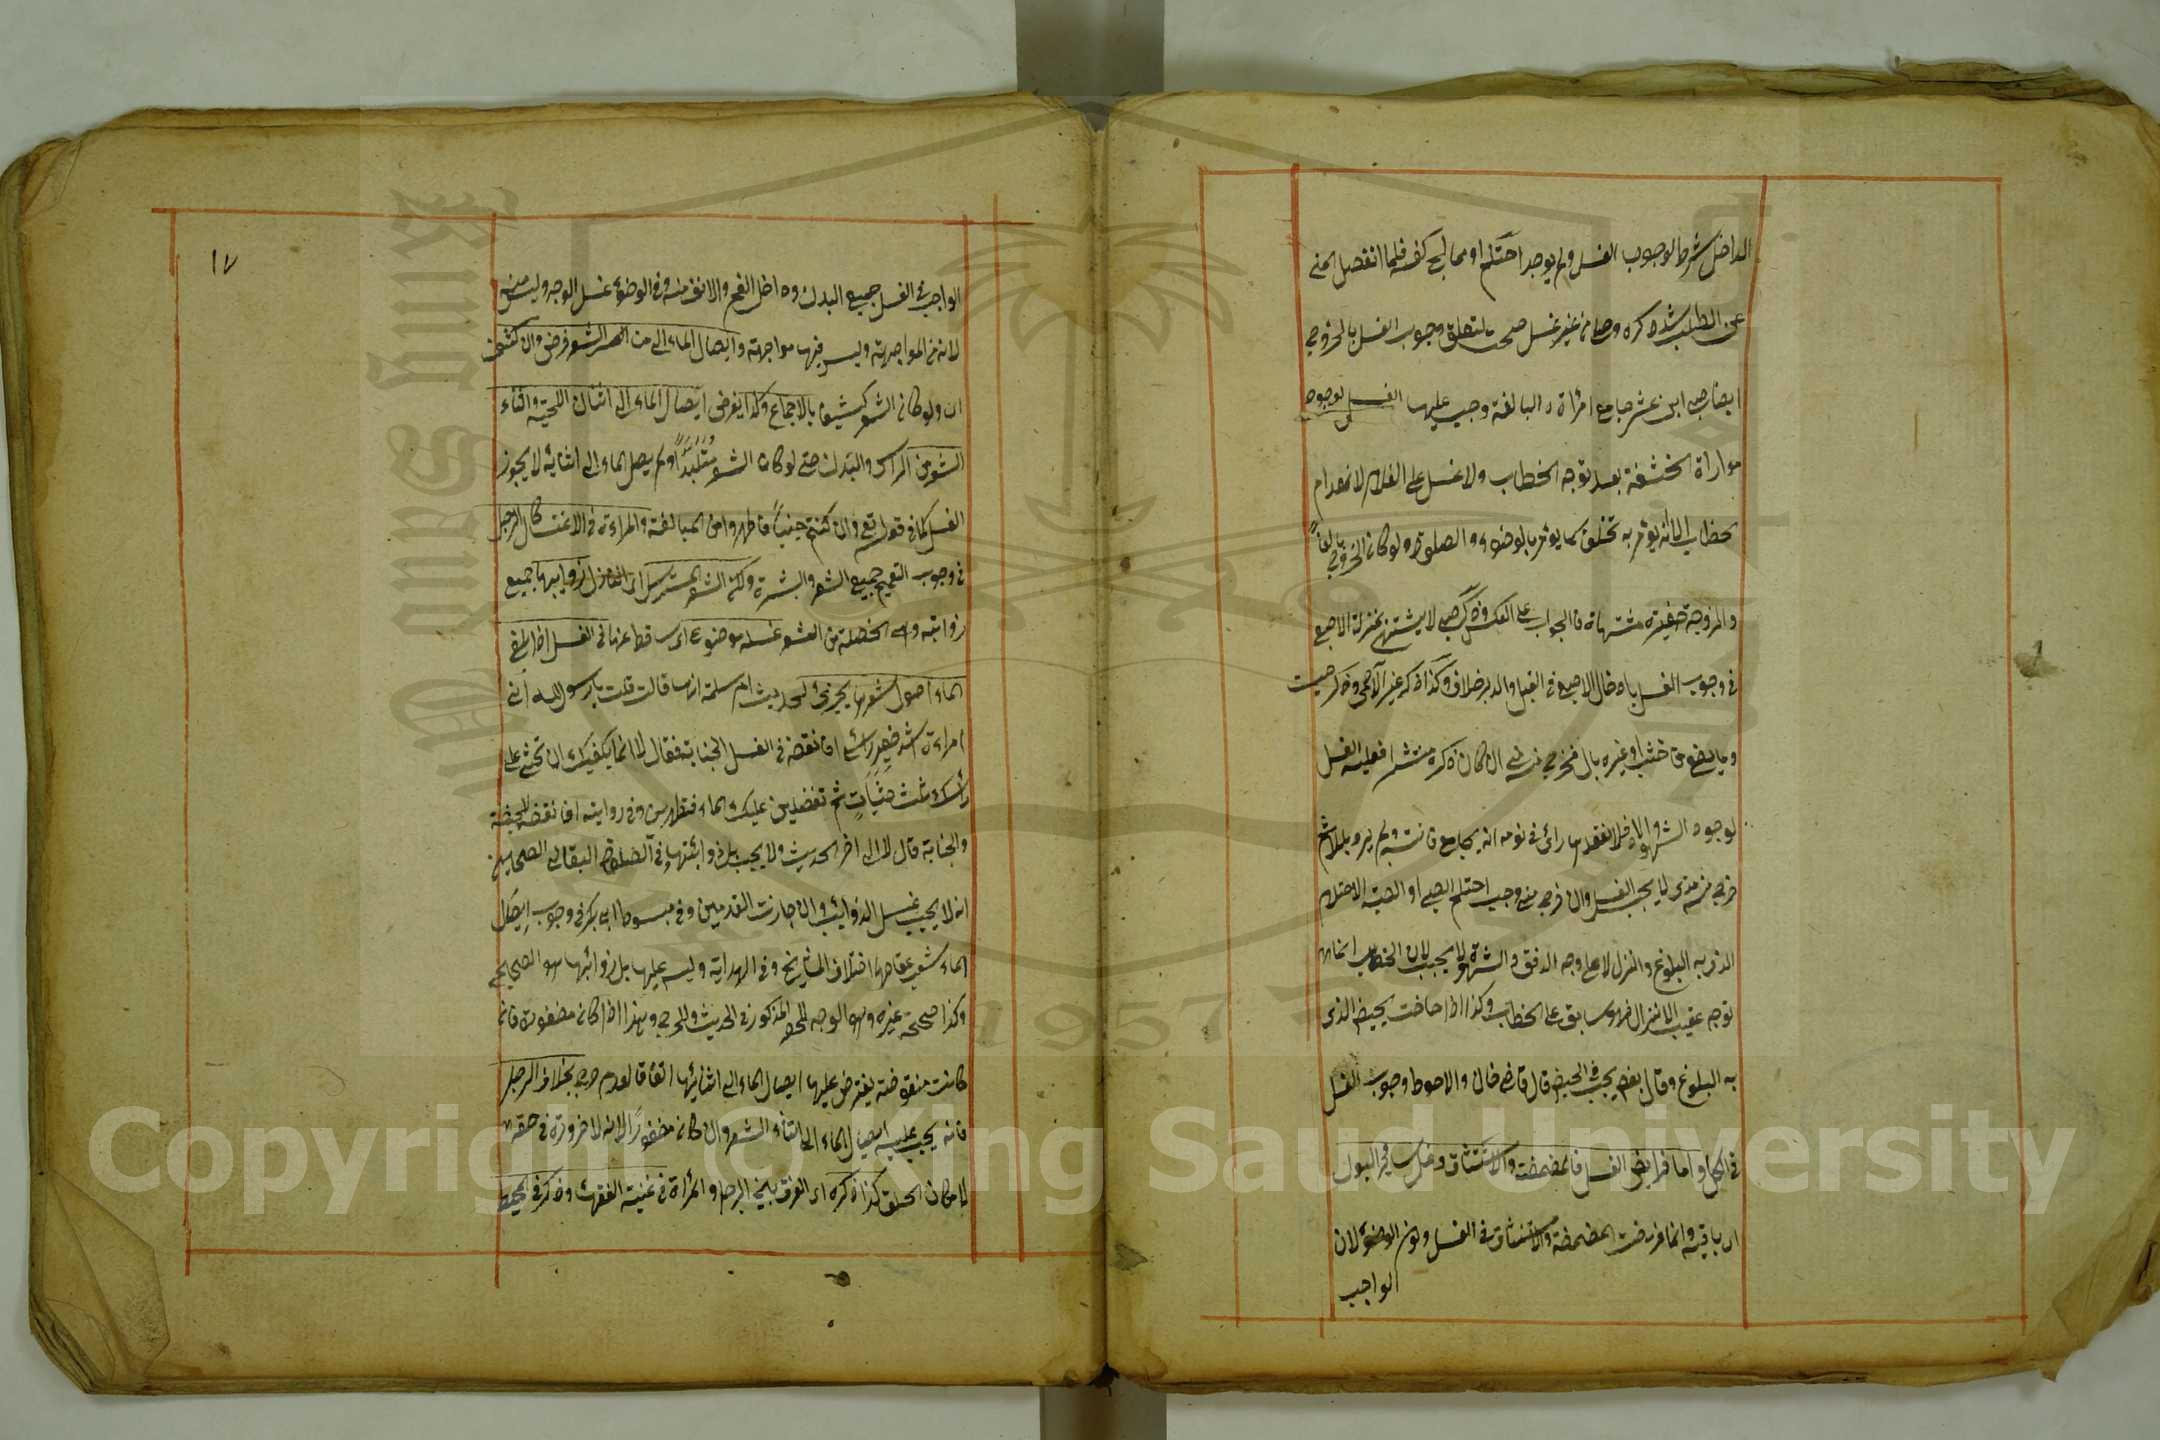 الداخل شرط لوجوب الغسل ولم يوجد احتلم او عالج كفه فلما انفصل المني
عن الصلب شد ذكره وصلى من غير غسل صحت لتعلق وجوب الغسل بالخروج
ايضا صبي ابن عشر جامع امرأة البالغة وجب عليها الغسل لوجود
مواراة الحشفة بعد توجه الخطاب ولا غسل على الغلام لانعدام
الخطاب الا انه يؤمر به تخلقا كما يؤمر بالوضوء والصلوة ولو كان الزوج بالغا
والزوجة صغيرة مشتهاة فالجواب على العكس وذكر صبي لا يشتهي بمنزلة الاصبع
في وجوب الغسل بادخال الاصبع في القبل والدبر خلاف وكذا ذكر غير الآدمي وذكر ميت
وما يصنع من خشب او غيره بال فخرج مني ان كان ذكره منتشرا فعليه الغسل
لوجود الشهوة والا فلا لفقدها رأى في نومه انه يجامع فانتبه ولم ير بللا ثم
خرج منه مذي لا يجب الغسل وان خرج مني وجب احتلم الصبي او الصبية الاحتلام
الذي به البلوغ والمنزل لا على وجه الدفق والشهوة لا يجب لان الخطاب انما
توجه عقيب الانزال فهو سابق على الخطاب وكذا اذا حاضت بحيض الذي
به البلوغ وقال بعضهم يجب في الحيض قال قاضي خان والاحوط وجوب الغسل
في الكل واما فرايض الغسل فالمضمضة والاستنشاق وغسل سائر البدن
اي باقيه وانما فرضت المضمضة والاستنشاق في الغسل دون الوضوء لان
الواجب
١٧
الواجب في الغسل جميع البدن وداخل الفم والانف منه وفي الوضوء غسل الوجه وليس منه
لانه من المواجهة وليس فيهما مواجهة وايصال الماء الى منابت الشعر فرض وان كثف
اي ولو كان الشعر كثيفا بالاجماع وكذا يفرض ايصال الماء الى اثناء اللحية واثناء
الشعر من الرأس والبدن حتى لو كان الشعر متلبدا ولم يصل الماء الى اثنائه لا يجوز
الغسل كما في قوله تع وان كنتم جنبا فاطهروا من المبالغة والمراءة في الاغتسال كالرجل
في وجوب التعميم جميع الشعر والبشرة ولكن الشعر المسترسل اي النازل ذوايبها جميع
ذوابة وهي الخصلة من الشعر غسله موضوع اي ساقط عنها في الغسل اذا بلغ
الماء اصول شعرها يجزئ لحديث ام سلمة انها قالت قلت يا رسول الله اني
امراءة اشد ضفر رأسي افانقضه في الغسل الجنابة فقال لا انما يكفيك ان تحثي على
رأسك ثلث حثيات ثم تفيضين عليك الماء فتطهرين وفي رواية افانقضه للحيضة
والجنابة قال لا الى اخر الحديث ولا يجب بل ذوائبها في الصلوة البقالي الصحيح
انه لا يجب غسل الذوائب وان جازت القدمين وفي مبسوط ابي بكر في وجوب ايصال
الماء شعب عقاصها اختلاف المشايخ وفي الهداية وليس عليها بل ذوائبها هو الصحيح
وكذا صححه غيره وهو الوجه للحصر المذكور في الحديث وللحرج وهذا اذا كانت مضفورة فان
كانت منقوضة يفترض عليها ايصال الماء الى اثنائها اتفاقا لعدم الحرج بخلاف الرجل
فانه يجب عليه ايصال الماء الى اثناء الشعر وان كان مضفورا لانه لا ضرورة في حقه
لامكان الحلق كذا ذكره اي الفرق بين الرجل والمرأة في غنية الفقهاء وذكر في المحيط